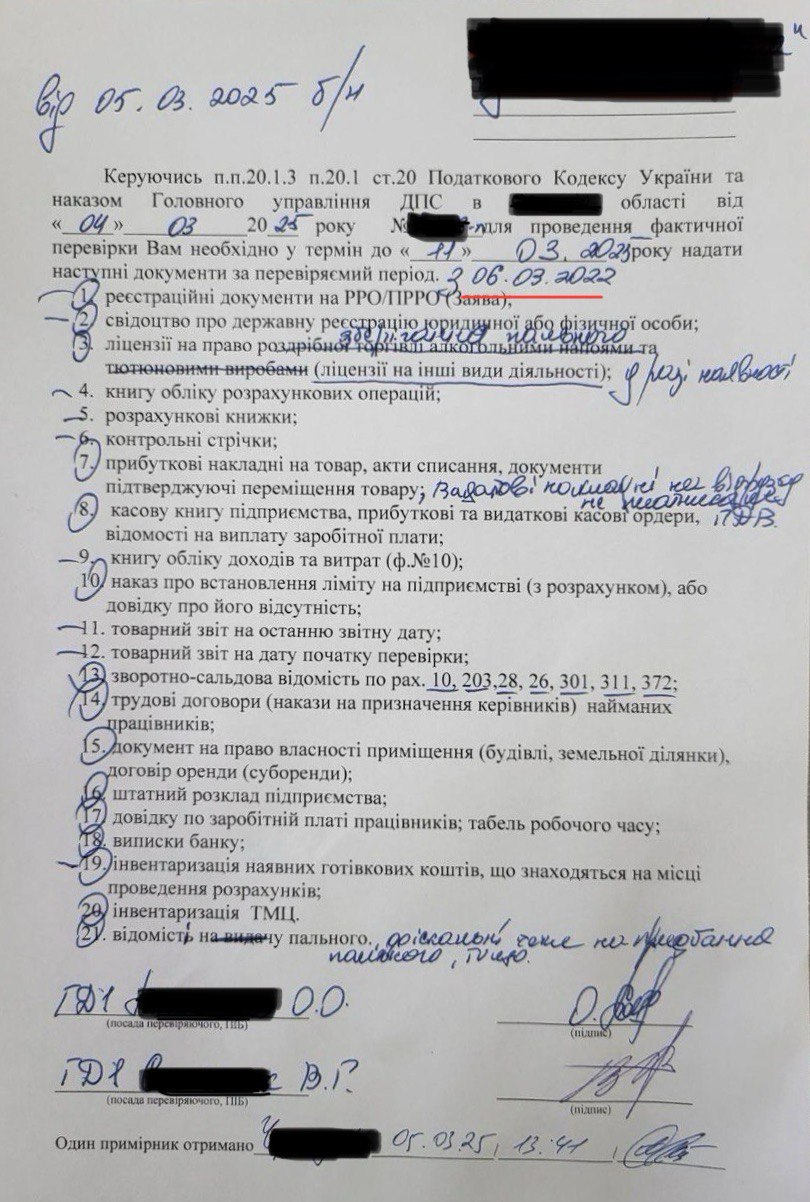 "
від 05.03.2025 б/н
Керуючись п.п.20.1.3 п.20.1 ст.20 Податкового Кодексу України та
наказом Головного управління ДПС в області від
«04» 03 2025 року № -п для проведення фактичної
перевірки Вам необхідно у термін до «11» 03. 2025 року надати
наступні документи за перевіряємий період. з 06.03.2022
1. реєстраційні документи на РРО/ПРРО (Заява);
2. свідоцтво про державну реєстрацію юридичної або фізичної особи;
зберігання пального
3. ліцензії на право роздрібної торгівлі алкогольними напоями та
тютюновими виробами (ліцензії на інші види діяльності); у разі наявності
4. книгу обліку розрахункових операцій;
5. розрахункові книжки;
6. контрольні стрічки;
7. прибуткові накладні на товар, акти списання, документи
підтверджуючі переміщення товару;
8. касову книгу підприємства, прибуткові та видаткові касові ордери, ПДВ.
відомості на виплату заробітної плати;
9. книгу обліку доходів та витрат (ф.№10);
10. наказ про встановлення ліміту на підприємстві (з розрахунком), або
довідку про його відсутність;
11. товарний звіт на останню звітну дату;
12. товарний звіт на дату початку перевірки;
13. зворотно-сальдова відомість по рах. 10, 203,28, 26, 301, 311, 372;
14. трудові договори (накази на призначення керівників) найманих
працівників;
15. документ на право власності приміщення (будівлі, земельної ділянки),
договір оренди (суборенди);
16. штатний розклад підприємства;
17. довідку по заробітній платі працівників; табель робочого часу;
18. виписки банку;
19. інвентаризація наявних готівкових коштів, що знаходяться на місці
проведення розрахунків;
20. інвентаризація ТМЦ.
21. відомості на видачу пального., на придбання
пального, тощо.
ГДІ О.О.
(посада перевіряючого, ПІБ) (підпис)
ГДІ В.Г.
(посада перевіряючого, ПІБ) (підпис)
Один примірник отримано 05.03.25, 13:41,